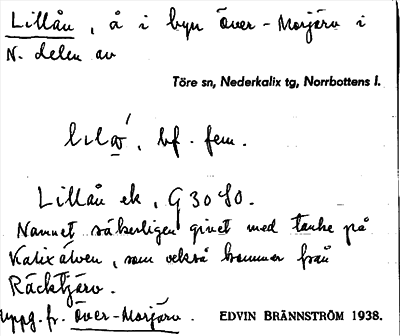 Lillån, å i byn Över-Morjärv i
N. delen av
Töre sn, Nederkalix tg, Norrbottens l.
bf. fem.
Lillån ek, G 30 S0.
Namnet säkerligen givet med tanke på
Kalixälven, som också kommer från
Räcktjärv.
Uppg. fr. Över-Morjärv. EDVIN BRÄNNSTRÖM 1938.